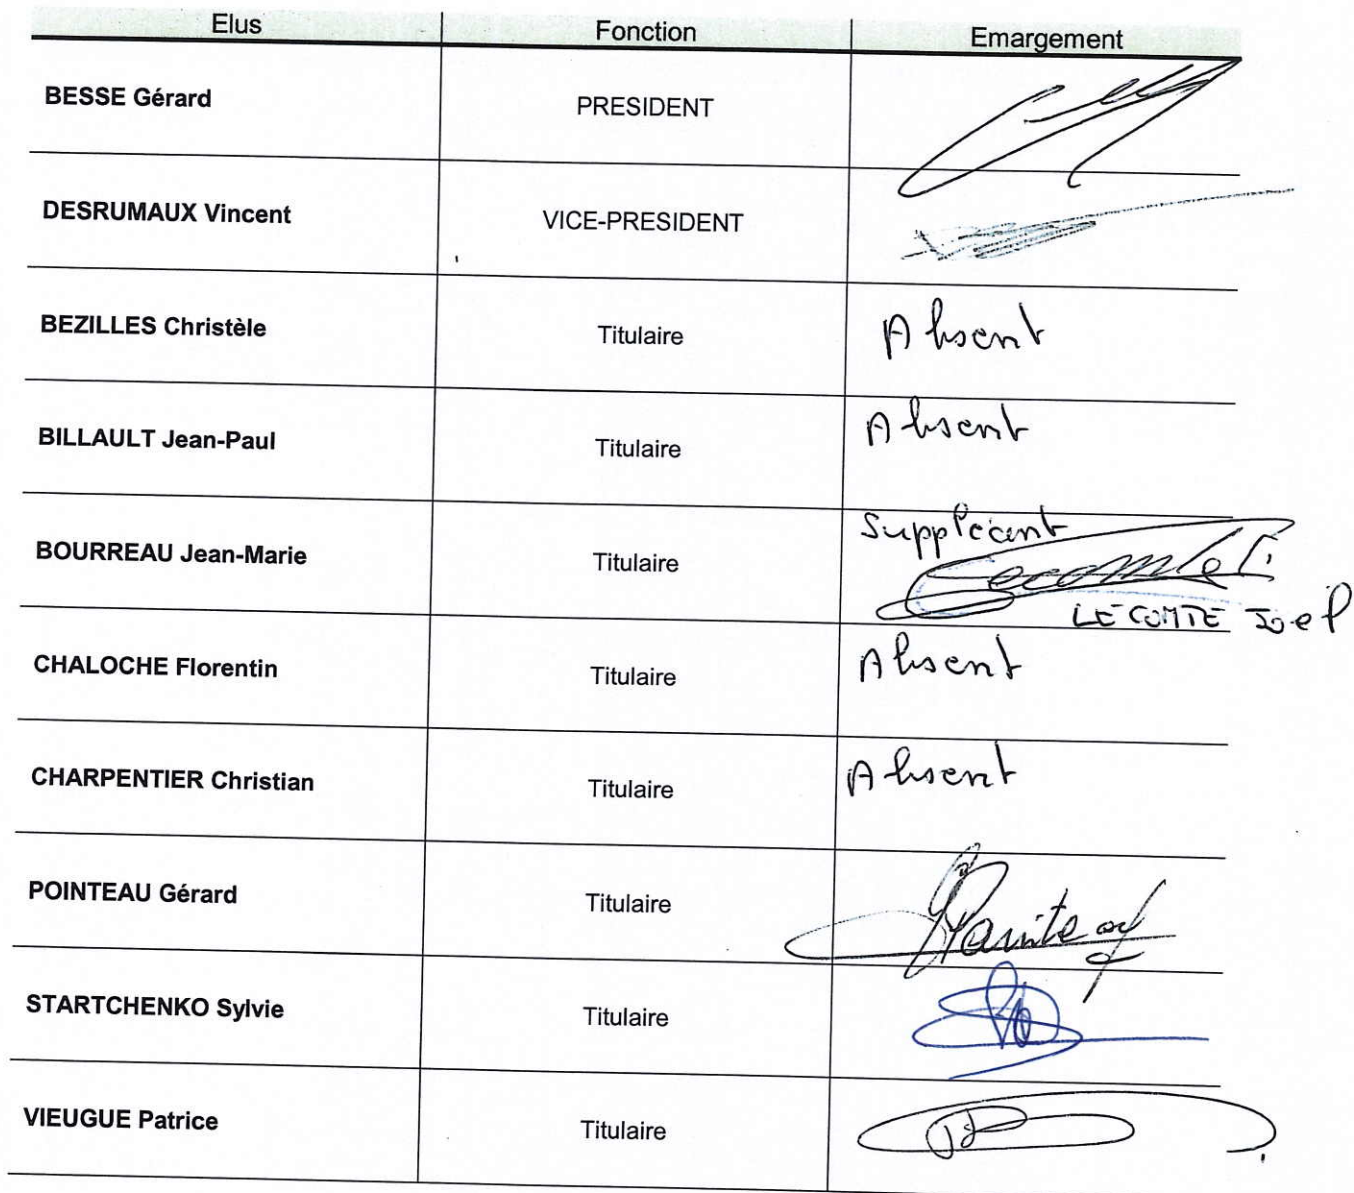 Elus Fonction Emargement
BESSE Gérard PRESIDENT
DESRUMAUX Vincent VICE-PRESIDENT
BEZILLES Christèle Titulaire Absent
BILLAULT Jean-Paul Titulaire Absent
Suppléant
BOURREAU Jean-Marie Titulaire
LECOMTE Joel
CHALOCHE Florentin Titulaire Absent
CHARPENTIER Christian Titulaire Absent
POINTEAU Gérard Titulaire
STARTCHENKO Sylvie Titulaire
VIEUGUE Patrice Titulaire